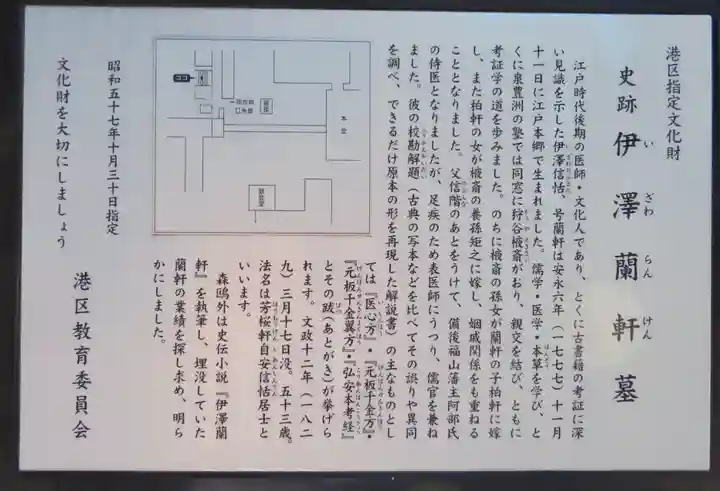 港区指定文化財
史跡 伊澤蘭軒墓
江戸時代後期の医師・文化人であり、とくに古書籍の考証に深
い見識を示した伊澤信恬、号蘭軒は安永六年(一七七七)十一月
十一日に江戸本郷で生まれました。儒学・医学・本草を学び、と
くに泉豊洲の塾では同窓に狩谷棭斎がおり、親交を結び、ともに
考証学の道を歩みました。のちに棭斎の孫女が蘭軒の子柏軒に嫁
し、また柏軒の女が棭斎の養孫矩之に嫁し、姻戚関係をも重ねる
こととなりました。父信階のあとをうけて、備後福山藩主阿部氏
の侍医となりましたが、足疾のため表医師にうつり、儒官を兼ね
ました。彼の校勘解題(古典の写本などを比べてその誤りや異同
を調べ、できるだけ原本の形を再現した解説書)の主なものとし
ては『医心方』・『元板千金方』・
『元板千金翼方』・『弘安本考経』
とその跋(あとがき)が挙げら
れます。文政十二年(一八二
九)三月十七日没。五十三歳。
法名は芳桜軒自安信恬居士と
いいます。
森鴎外は史伝小説『伊澤蘭
軒』を執筆し、埋没していた
蘭軒の業績を探し求め、明ら
かにしました。
本堂
昭和五十七年十月三十日指定
文化財を大切にしましょう
港区教育委員会